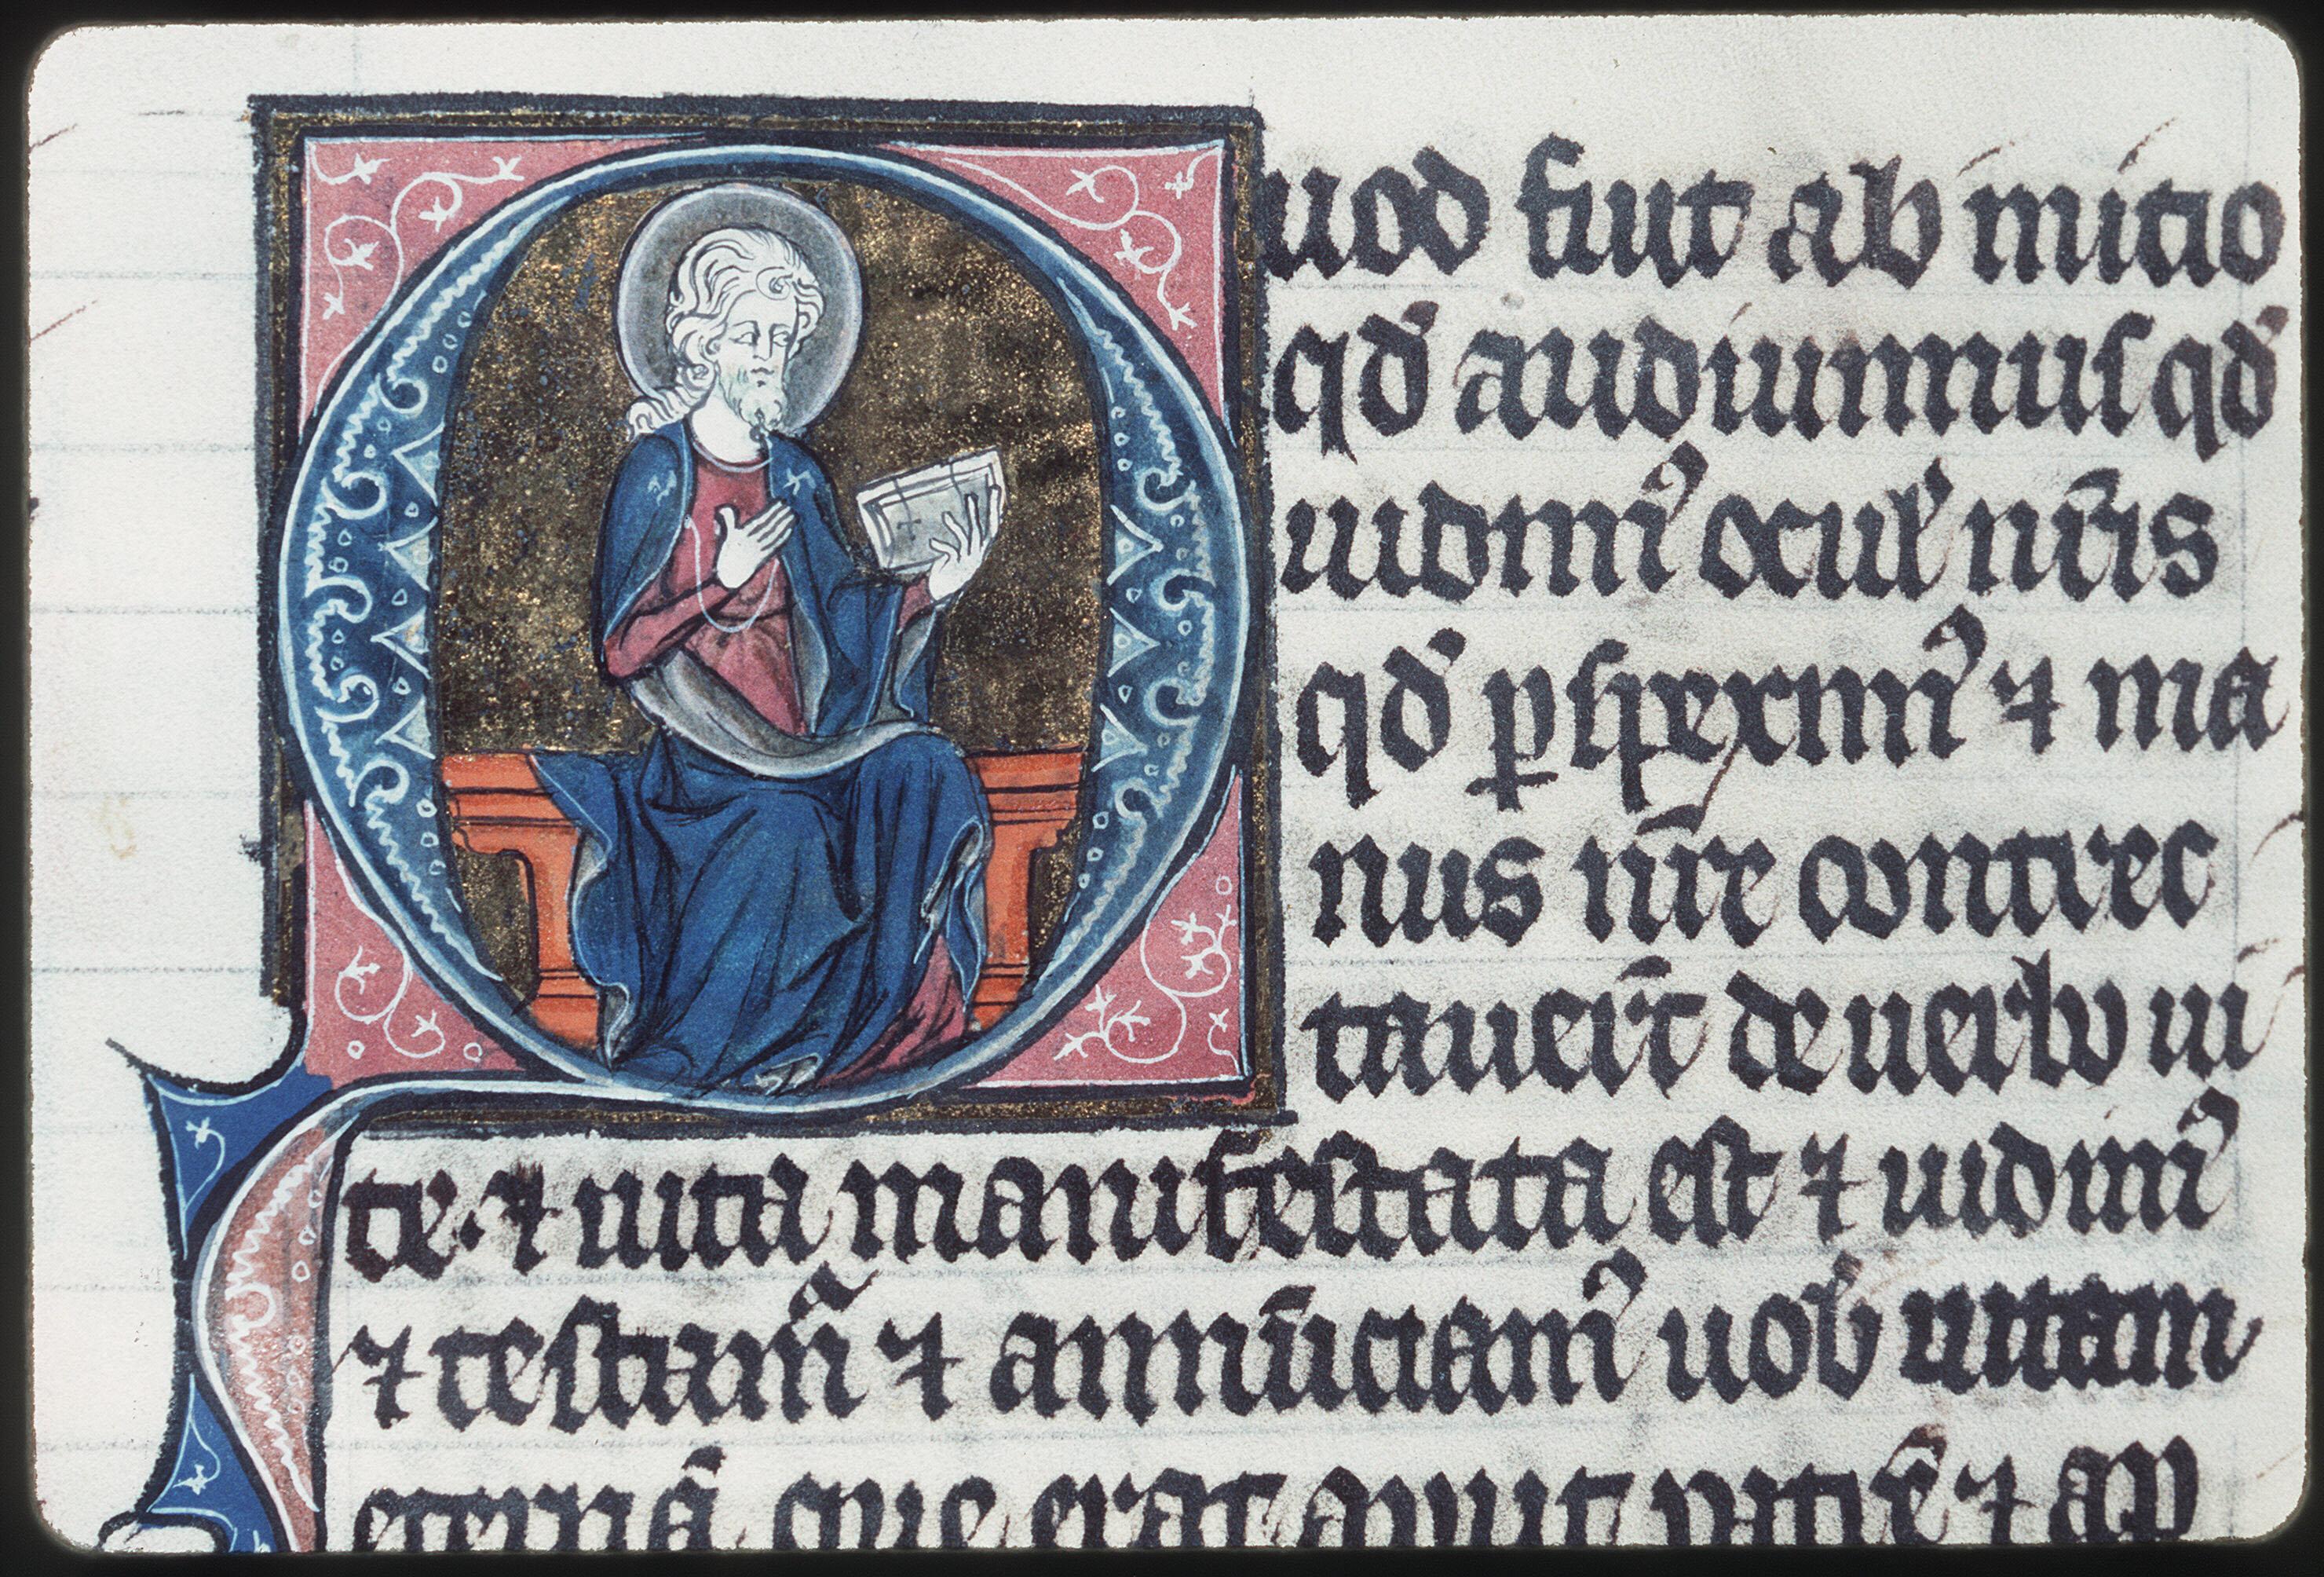 Quod fuit ab inicio
qd̕ audiuimus qd̕
uidim᷒ ocul᷒ nr̄is
qd̕ ꝑspexim᷒ ⁊ ma
nus nr̄e contrec
tauer̄t de uerbo ui
te· ⁊ uita manifestata est ⁊ uidim᷒
⁊ testam᷒ ⁊ annūciam᷒ uob̕ uitam
eternā que erat aput patrē ⁊ ap